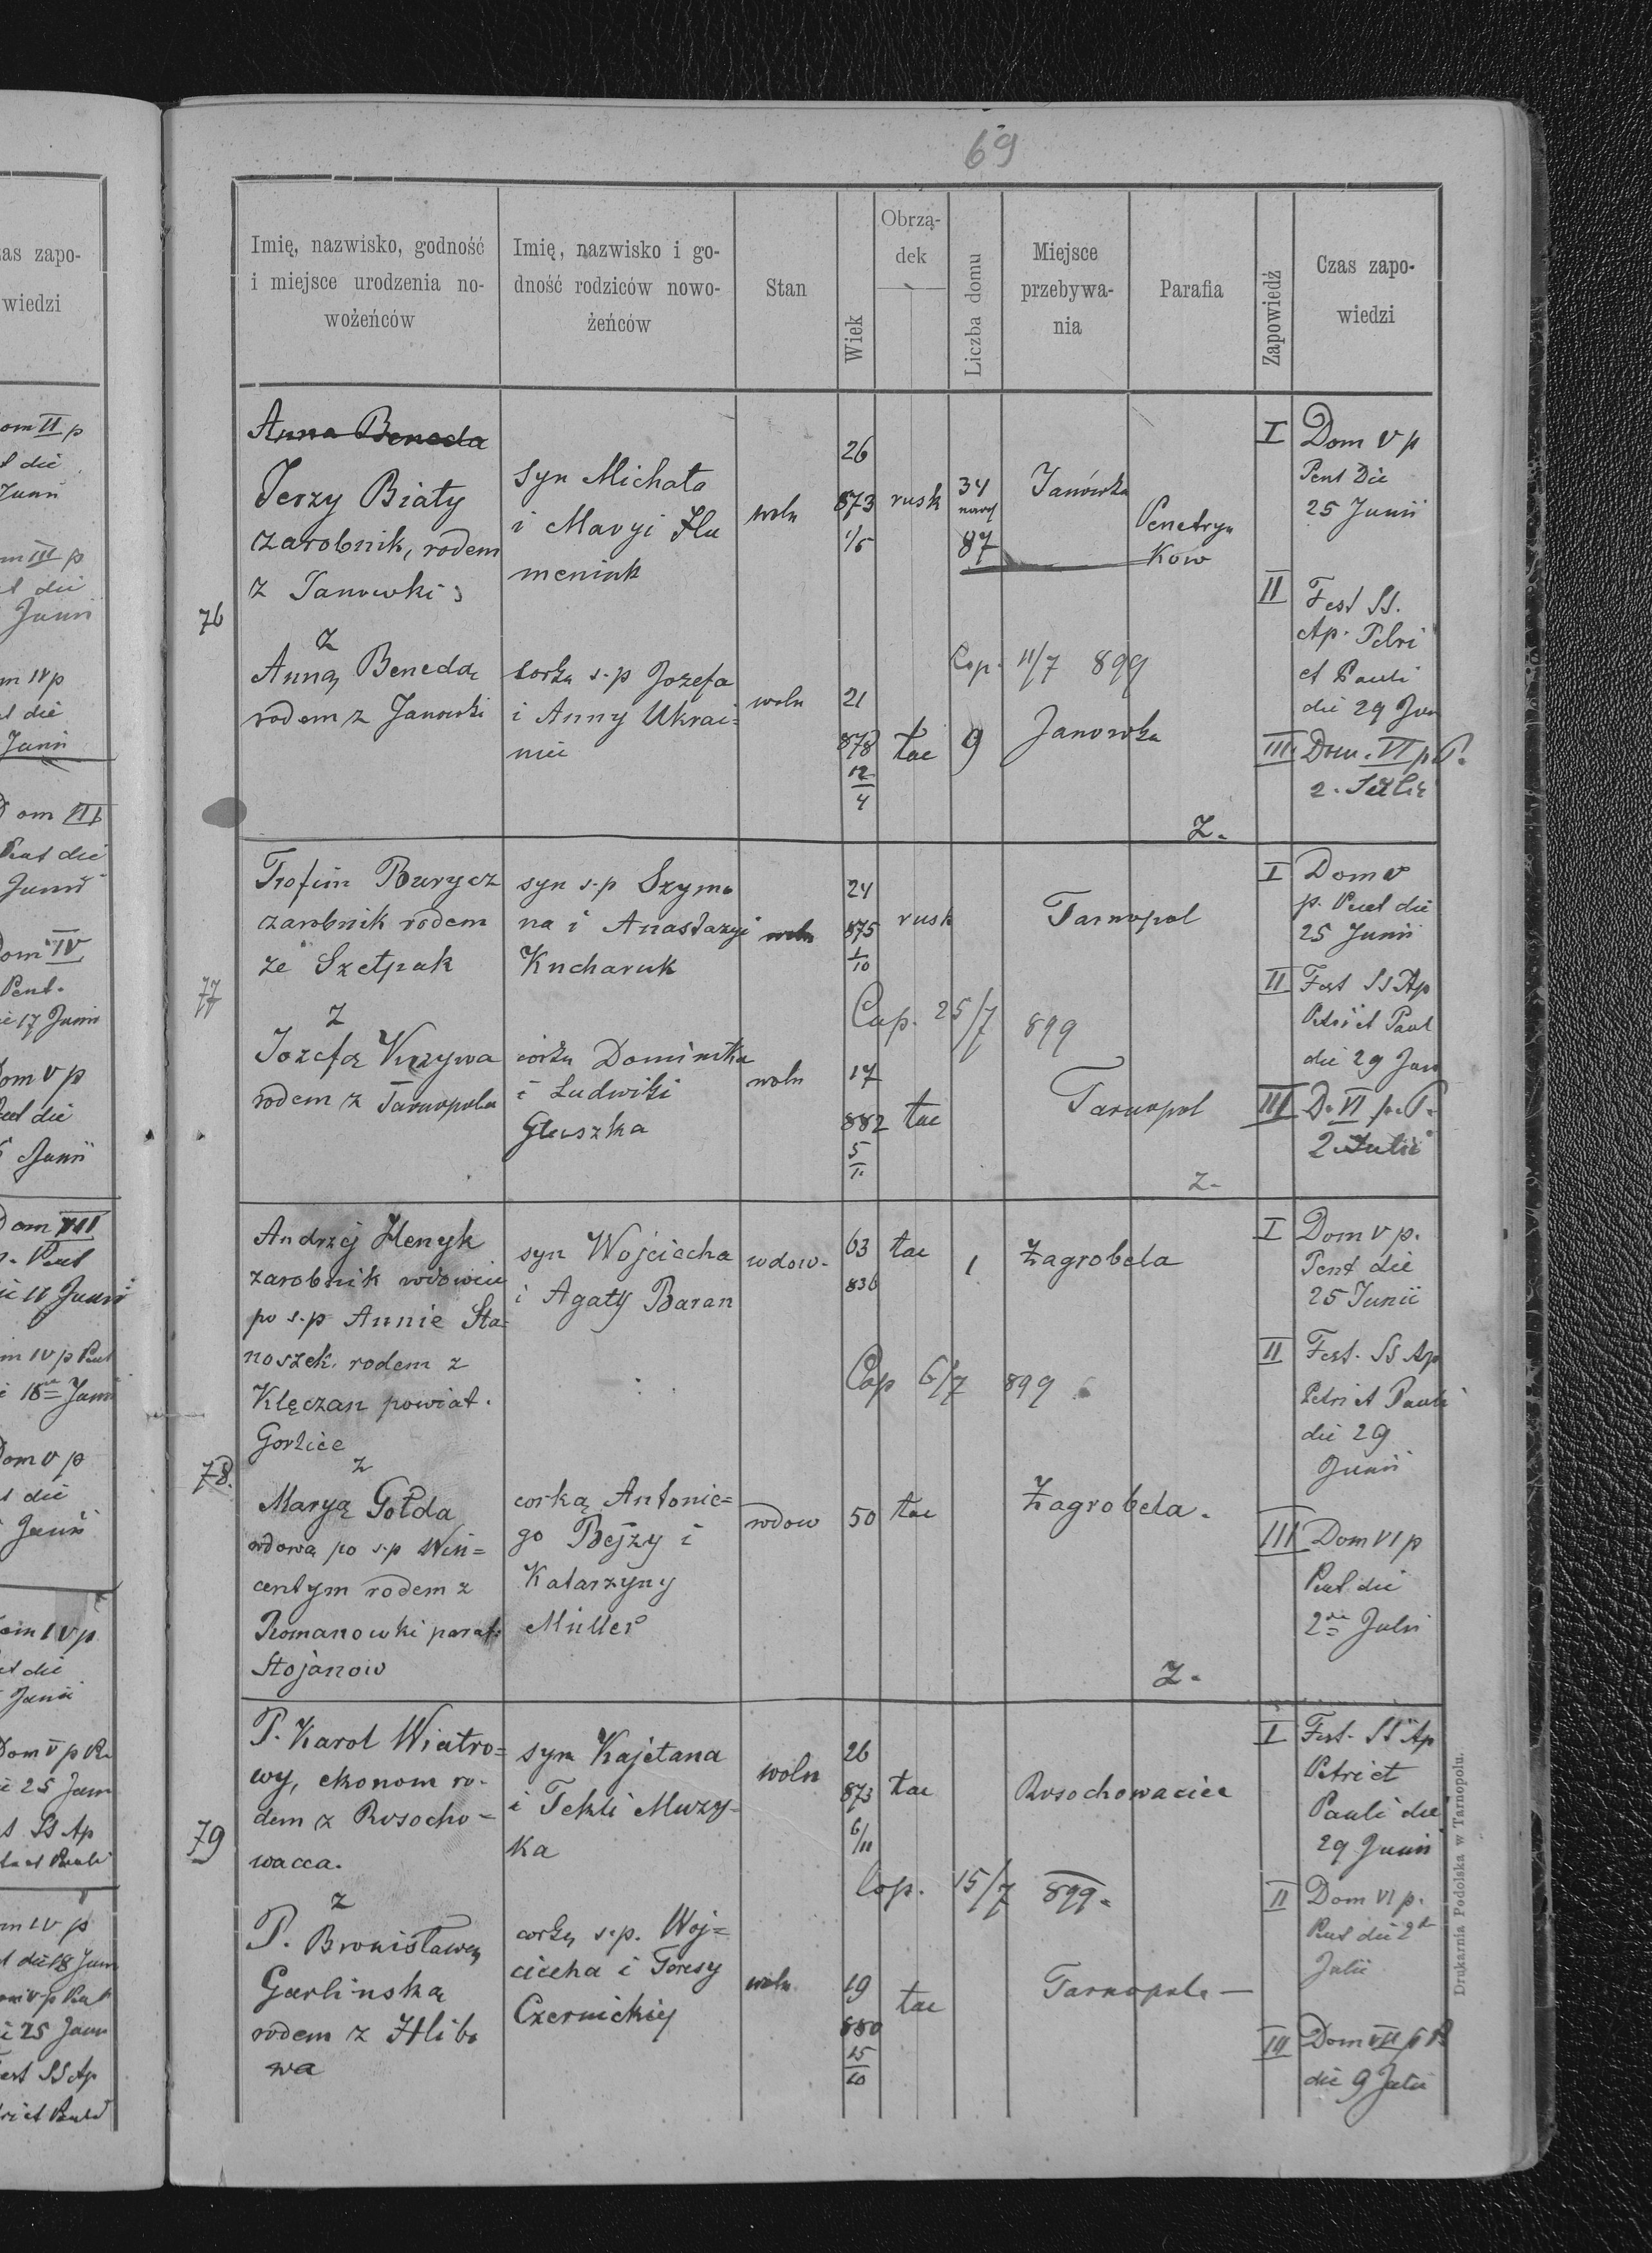 69
Imię, nazwisko, godność
i miejsce urodzenia no-
wożeńców
Imię, nazwisko i go-
dność rodziców nowo-
żeńców
Stan
Wiek
Obrzą-
dek
Liczba domu
Miejsce
przebywa-
nia
Parafia
Zapowiedź
Czas zapo-
wiedzi
76
Anna Beneda
Jerzy Biały
zarobnik, rodem
z Janowki
z
Anną Benedą
rodem z Janowki
syn Michała
i Maryi Hu
meniuk
corką s.p Jozefa
i Anny Ukrai=
nic
woln
woln
26
873
1/5
21
878
12
4
rusk
łac
34
87
9
Janówka
Cop. 11/7 899
Janowka
Penetry
kow
Z.
I Dom V p
Pent die
25 Junii
II Fest SS.
Ap. Petri
et Pauli
die 29 Jun
III. Dom. VI p P.
2. Julii
77
Trofim Burycz
zarobnik rodem
ze Szełpak
z
Jozefą Krzywa
rodem z Tarnopola
syn s.p Szymo
na i Anastazyi
Kucharuk
corką Dominika
i Ludwiki
Głuszka
woln
woln
24
875
1
10
17
882
5
rusk
łac
Tarnopol
Cop. 25/7 899
Tarnopol
Z.
I Dom V
p. Pent die
25 Junii
II Fest SS Ap
Petri et Paul
die 29 Jun
III D. VI p. P.
2. Julii
78.
Andrzej Henyk
zarobnik wdowiec
po s.p Annie Sta-
noszek. rodem z
Klęczan powiat.
Gorlice
z
Maryą Gołda
wdową po s.p Win=
centym rodem z
Romanowki paraf.
Stojanow
syn Wojciecha
i Agaty Baran
corką Antonie=
go Bejzy i
Katarzyny
Müller
wdow.
wdow
63
836
50
łac
łac
1
Zagrobela
Cop 6/7 899
Zagrobela.
Z.
I Dom V p.
Pent die
25 Junii
II Fest. SS Ap
Petri et Pauli
die 29
Junii
III Dom VI p
Pent die
2 Julii
79
P. Karol Wiatro=
wy, ekonom ro-
dem z Rosocho=
wacca.
z
P. Bronisławą
Garlinska
rodem z Hlibo
wa
syn Kajetana
i Tekli Muzy-
ka
corką s.p. Woj=
ciecha i Teresy
Czernickiej
woln
woln
26
873
6/11
19
880
15
10
łac
łac
Rosochowaciec
Cop. 15/7 899.
Tarnopol
I Fest. SS Ap
Petri et
Pauli die
29 Junii
II Dom VI p.
Pent die 2
Julii
III Dom VII p P
die 9 Julii
Drukarnia Podolska w Tarnopolu.